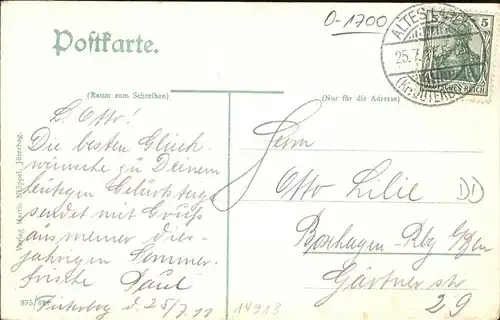 O-1700
Postkarte.
ALTES LAGER
25.7.
(Kr. JÜTERBOG
5
DEUTSCHES REICH
(Raum zum Schreiben)
(Nur für die Adresse)
L. Otto!
Die besten Glück-
wünsche zu Deinem
heutigen Geburtstage
sendet mit Gruß
aus meiner dies-
jährigen Sommer-
frische Paul
d. 25/7. 11
Herrn
Otto Lilie
DD
Boxhagen-Rbg
Gärtnerstr
29
14913
Verlag Martin Nüppel, Jüterbog.
875/